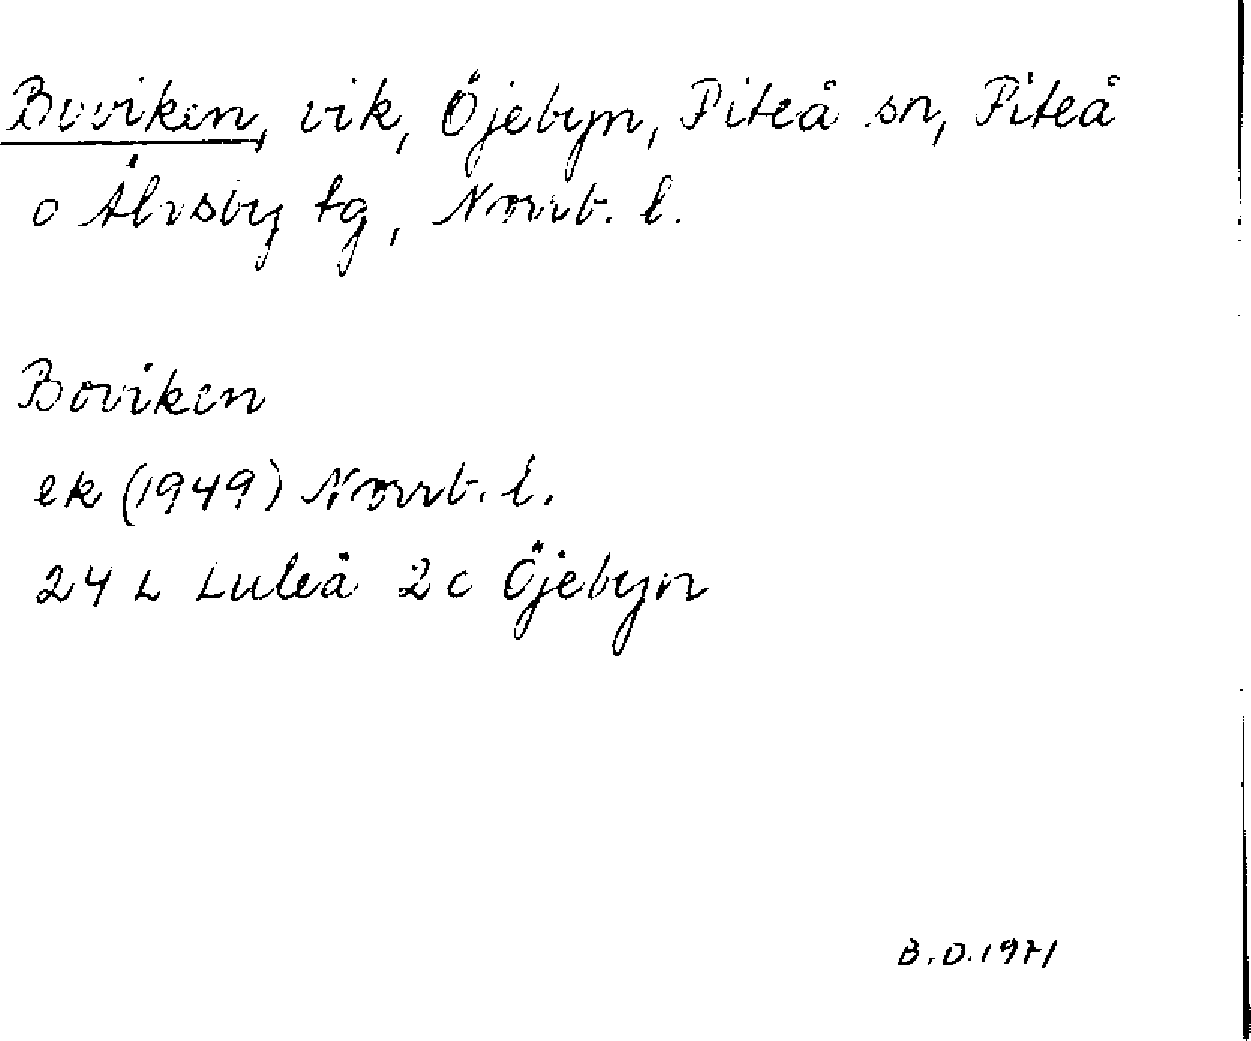 Boviken, vik, Öjebyn, Piteå sn, Piteå
o Älvsby tg, Norrb. l.
Boviken
ek (1949) Norrb. l.
24 L Luleå 2c Öjebyn
B.O.1971